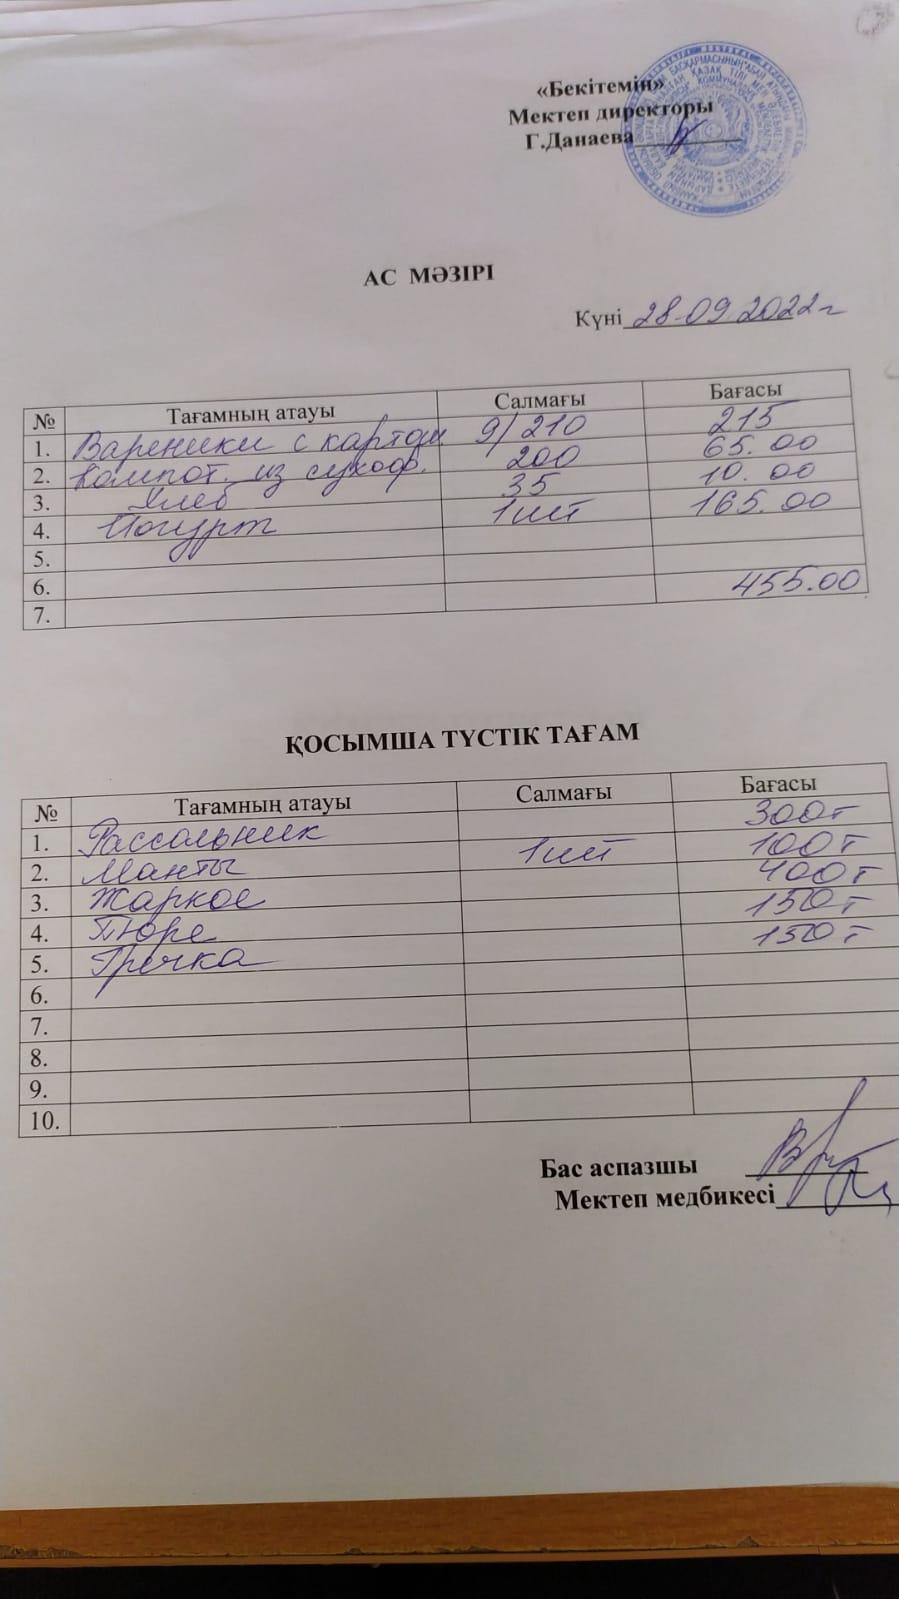 «Бекітемін»
Мектеп директоры
Г.Данаева
АС МӘЗІРІ
Күні 28.09.2022г
№ Тағамның атауы Салмағы Бағасы
1. Вареники с картош 9/210 215
2. Компот. из сухоф. 200 65.00
3. Хлеб 35 10.00
4. Йогурт 1шт 165.00
5.
6. 455.00
7.
ҚОСЫМША ТҮСТІК ТАҒАМ
№ Тағамның атауы Салмағы Бағасы
1. Рассольник 300т
2. Манты 1шт 100т
3. Жаркое 400т
4. Пюре 150т
5. Гречка 150т
6.
7.
8.
9.
10.
Бас аспазшы
Мектеп медбикесі